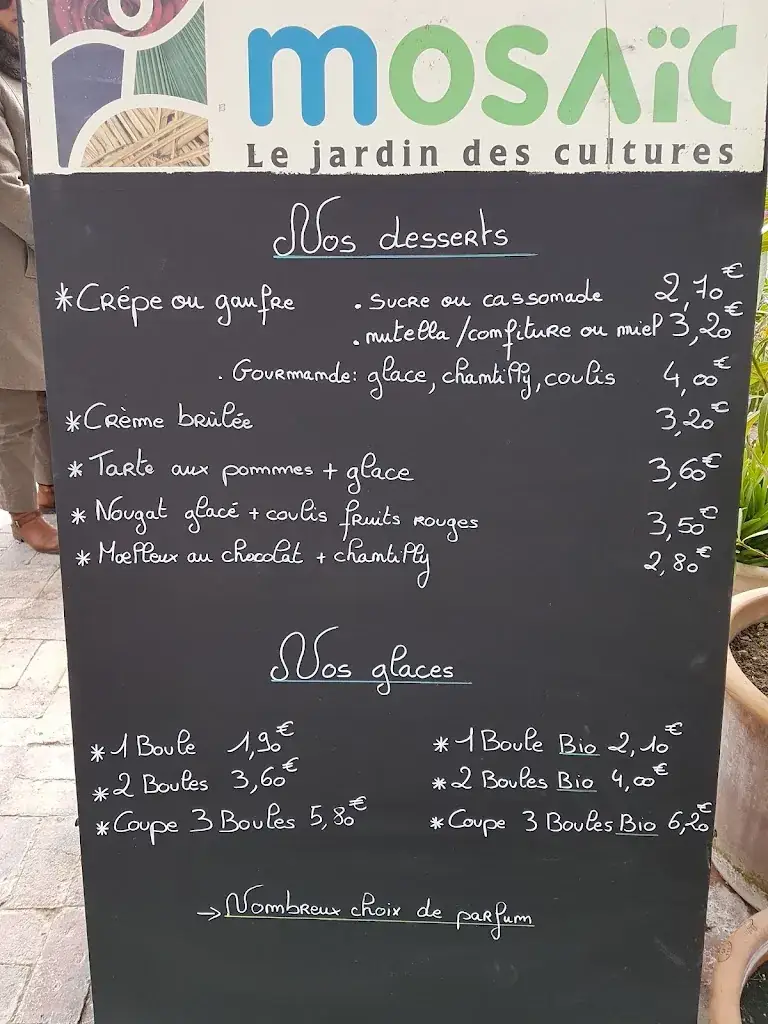 mosaïc
Le jardin des cultures
Nos desserts
*Crêpe ou gaufre . sucre ou cassonade 2,70€
. nutella/confiture ou miel 3,20€
. Gourmande: glace, chantilly, coulis 4,00€
*Crème brûlée 3,20€
*Tarte aux pommes + glace 3,60€
*Nougat glacé + coulis fruits rouges 3,50€
*Moelleux au chocolat + chantilly 2,80€
Nos glaces
*1 Boule 1,90€ *1 Boule Bio 2,10€
*2 Boules 3,60€ *2 Boules Bio 4,00€
*Coupe 3 Boules 5,80€ *Coupe 3 Boules Bio 6,20€
→Nombreux choix de parfum